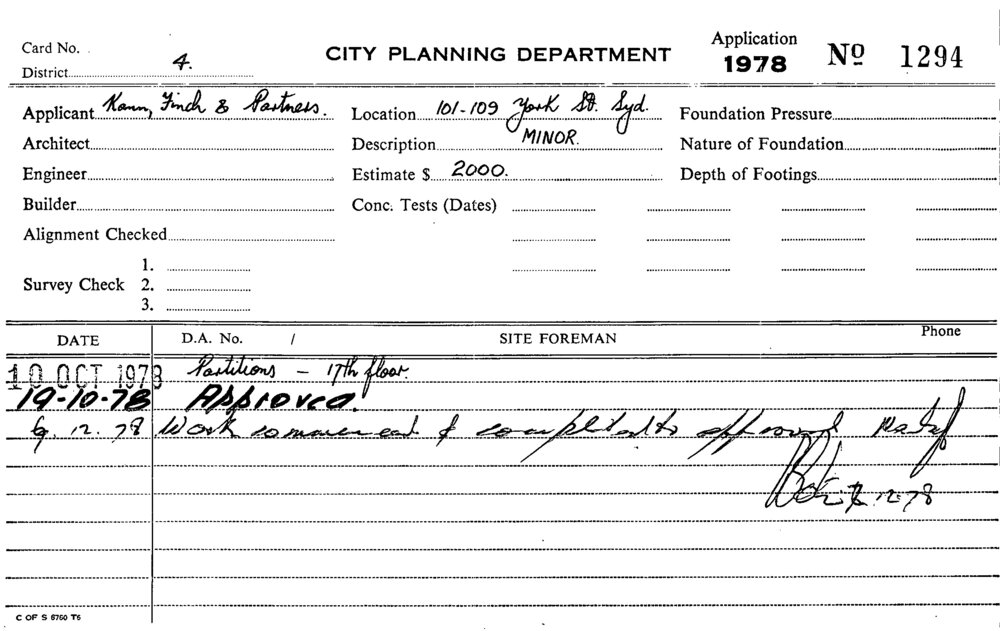 Card No.
District 4.
CITY PLANNING DEPARTMENT
Application
1978
No 1294
Applicant Kann, Finch & Partners.
Location 101-109 York St. Syd.
Foundation Pressure
Architect
Description MINOR.
Nature of Foundation
Engineer
Estimate $ 2000.
Depth of Footings
Builder
Conc. Tests (Dates)
Alignment Checked
Survey Check
1.
2.
3.
DATE D.A. No. / SITE FOREMAN Phone
10 OCT 1978 Partitions - 17th floor.
19-10-78 Approved.
12.78 Work commenced & completed to approval
12-78
C OF S 6760 T6